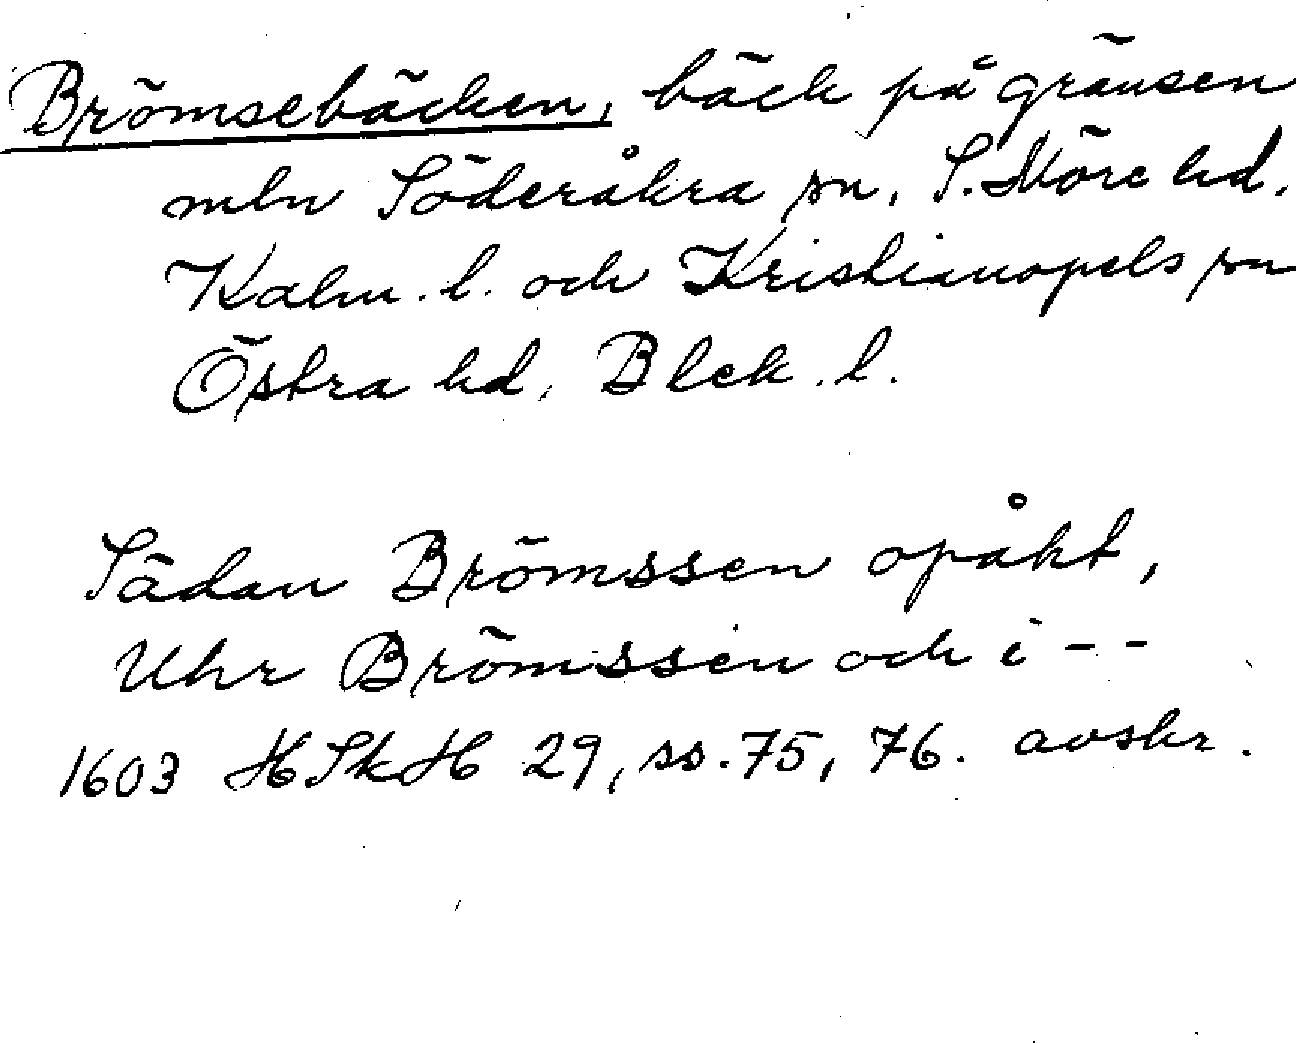 Brömsebäcken, bäck på gränsen
mln Söderåkra sn, S. Möre hd.
Kalm. l. och Kristianopels sn
Östra hd, Blek. l.
Sädan Brömssen opåkt,
Uhr Brömssen och i - -
1603 HSkH 29, ss. 75, 76. avskr.